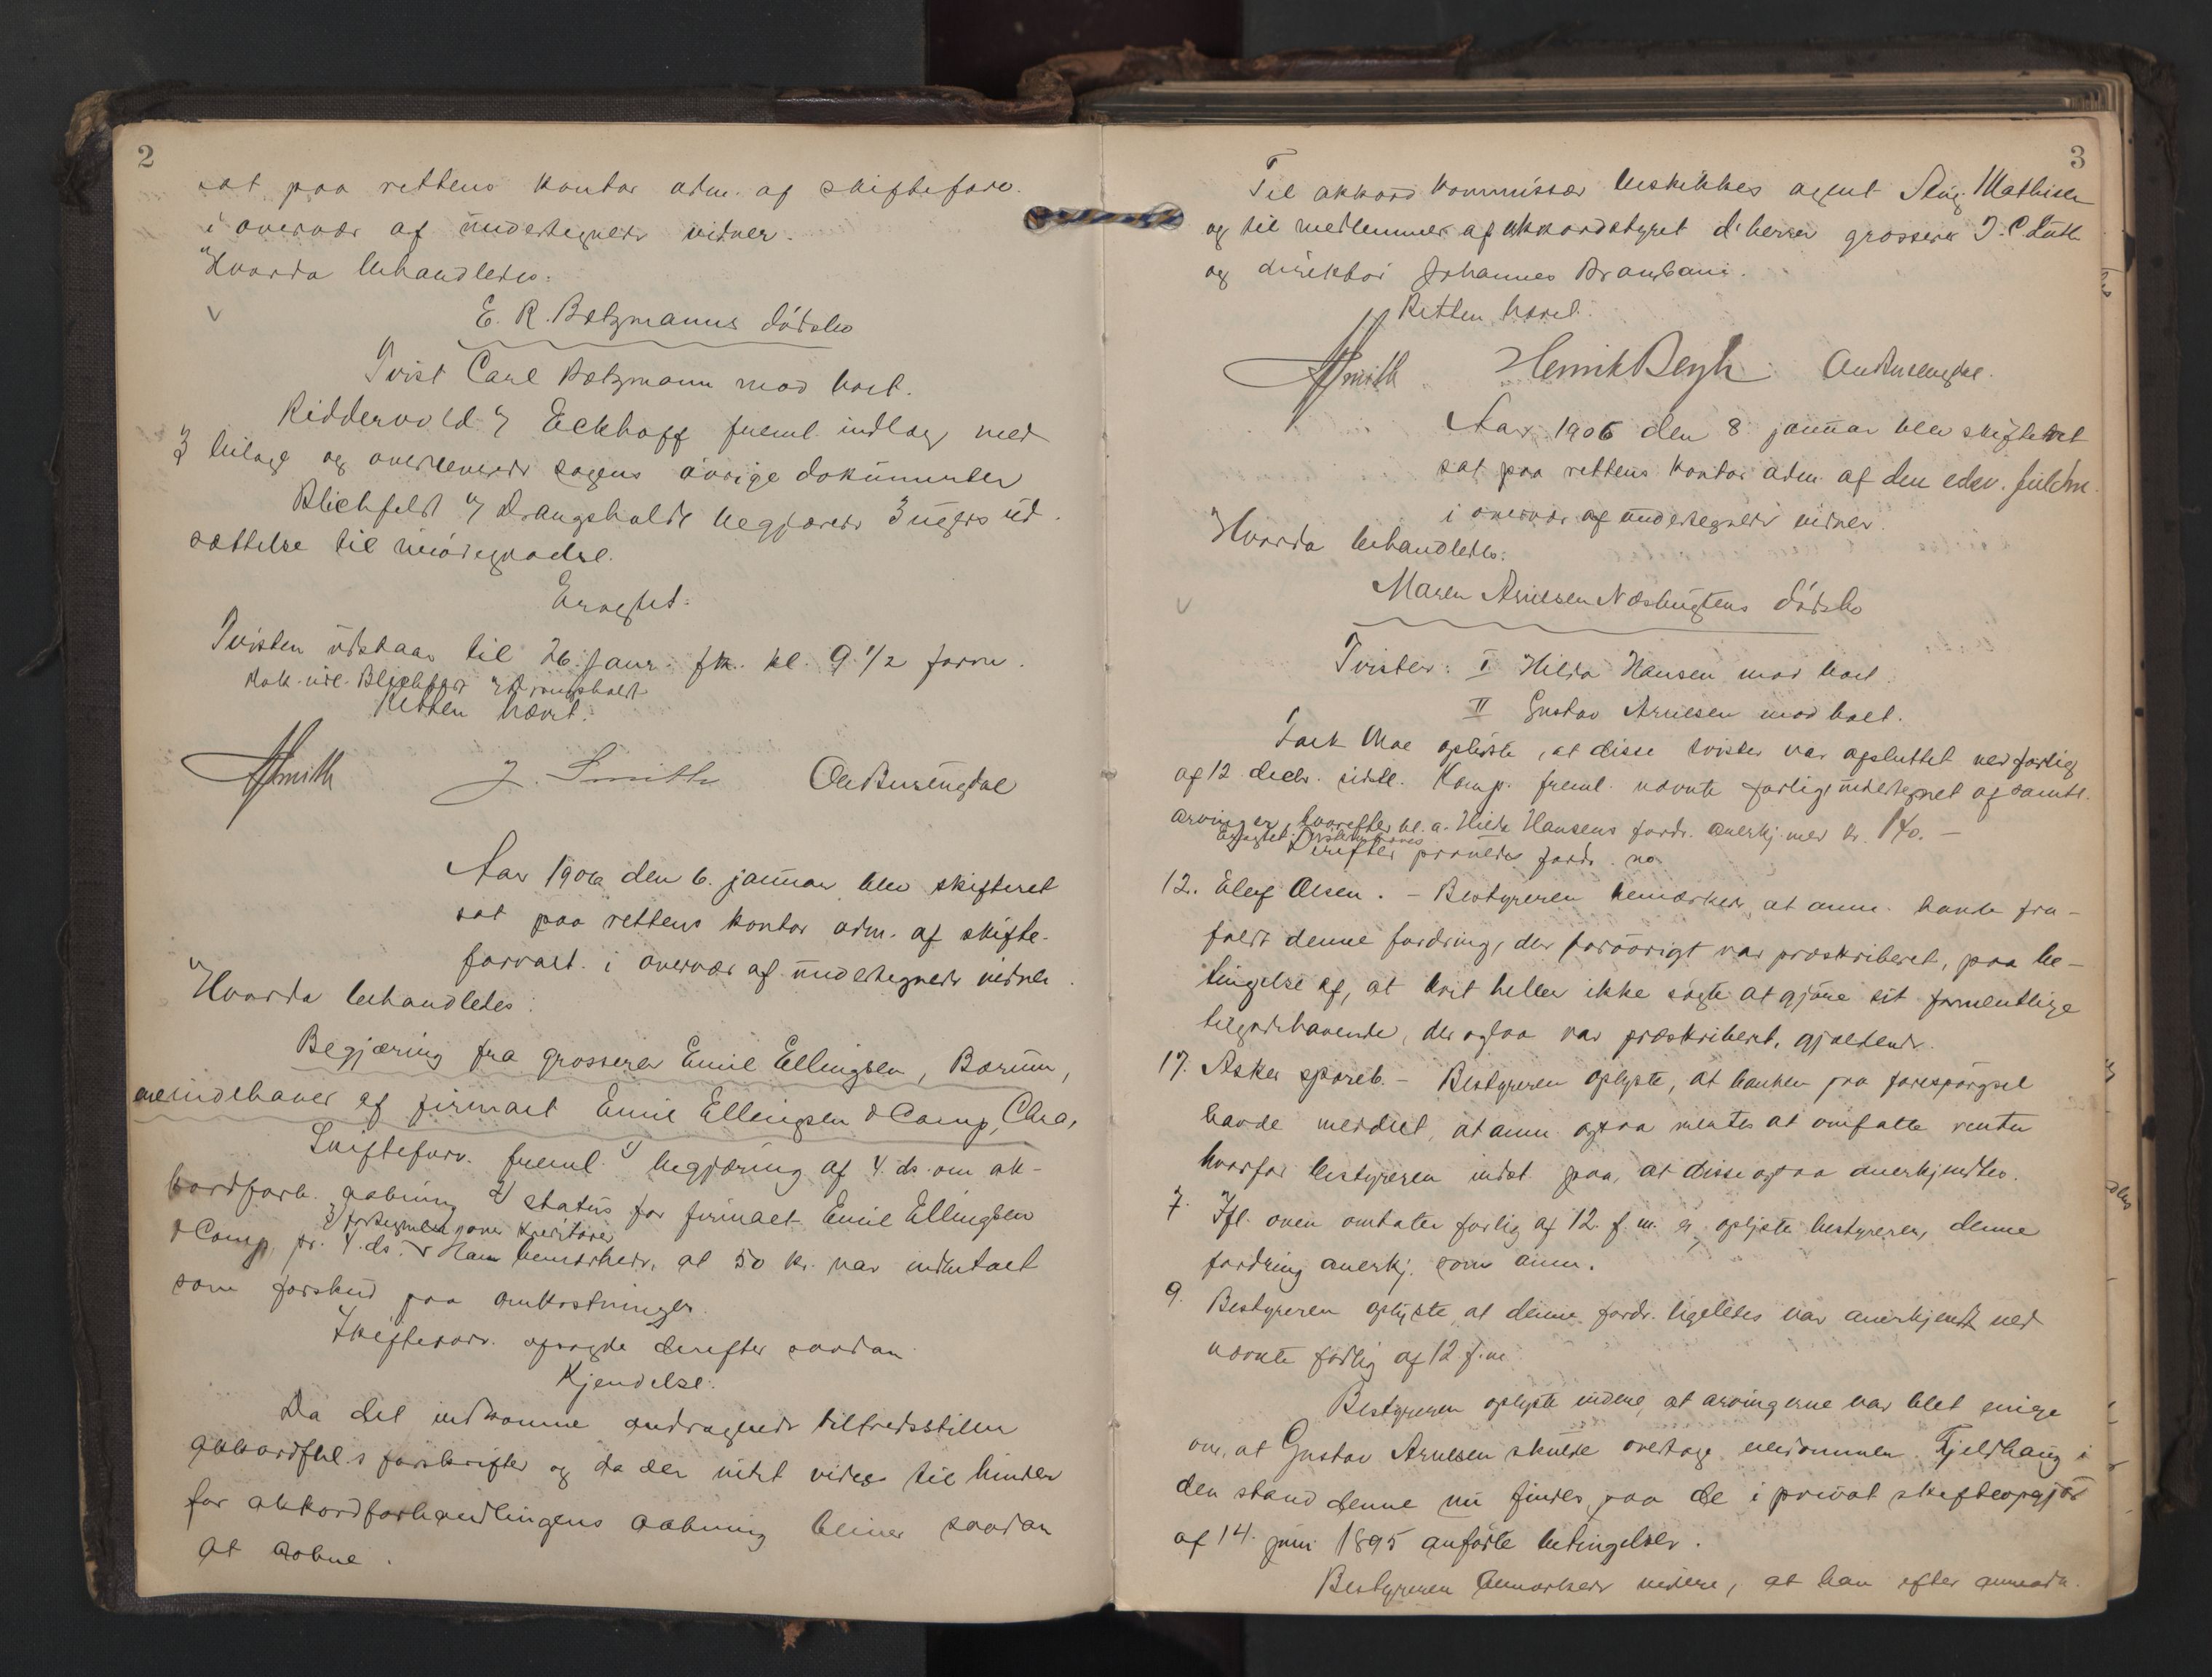 2
sat paa rettens kontor adm. af skifteforv.
i overvær af undertegnede vidner.
Hvorda behandledes:
E. R. Bætzmanns dødsbo
Tvist Carl Bætzmann mod boet.
Riddervold & Eckhoff freml. indlæg med
3 bilage og overleverede sagens øvrige dokumenter
Blichfeldt & Drangsholdt begjærede 3 ugers ud-
sættelse til imødegaaelse.
Eragtet:
Tvisten udstaar til 26. janr. fk. kl. 9 1/2 form.
Retten hævet.
ASmith J. Smith Ole Burengdal
Aar 1906 den 6. januar blev skifteret
sat paa rettens kontor adm. af skifte-
forvalt. i overvær af undertegnede vidner.
Hvorda behandledes:
Begjæring fra grosserer Emil Ellingsen, Bærum,
eneindehaver af firmaet Emil Ellingsen & Comp, Chra,
Skifteforv. freml. 1) begjæring af 4. ds. om ak-
kordforh. aabning 2) status for firmaet Emil Ellingsen
3) fortegnelse over kreditorer
& Comp. pr. 4. ds. Han bemærkede, at 50 kr. var indbetalt
som forskud paa omkostninger.
Skifteforv. afsagde derefter saadan
Kjendelse:
Da det indkomne andragende tilfredsstiller
akkordfhl.s forskrifter og da der intet vides til hinder
for akkordforhandlingens aabning bliver saadan
at aabne.
3
Til akkordkommissær beskikkes agent Sev. Mathisen
og til medlemmer af akkordstyret d'herrer grosserer J. C. Lüth
og direktør Johannes
Retten hævet.
ASmith Henrik Bergh Ole Burengdal.
Aar 1906 den 8 januar blev skifteret
sat paa rettens kontor adm. af den edsv. fuldm.
i overvær af undertegnede vidner.
Hvorda behandledes:
Maren Arnesen Næsbugtens dødsbo
Tvister: I Hilda Hansen mod boet.
II Gustav Arnesen mod boet.
Sack Moe oplyste, at disse tvister var afsluttet ved forlig
af 12 decbr. sidstl. Komp. freml. nævnte forlig undertegnet af samtl.
arvinger, hvorefter bl. a. Hilda Hansens fordr. anerkj. med kr. 140.-
Eragtet: Tvisterne hæves
Derefter prøvedes fordr. no
12. Eluf Olsen. - Bestyreren bemærkede, at anm. havde fra-
faldt denne fordring, der forøvrigt var præskriberet, paa be-
tingelse af, at boet heller ikke søgte at gjøre sit formentlige
tilgodehavende, der ogsaa var præskriberet, gjældende.
17. Asker spareb. - Bestyreren oplyste, at banken paa forespørgsel
havde meddelt, at anm. ogsaa mentes at omfatte renter
hvorfor bestyreren indst. paa, at disse ogsaa anerkjendtes.
7. Ifl. oven omtalte forlig af 12. f. m. er, oplyste bestyreren, denne
fordring anerkj. som anm.
9. Bestyreren oplyste at denne fordr. ligeledes var anerkjendt ved
nævnte forlig af 12 f. m.
Bestyreren oplyste videre, at arvingerne var blet enige
om, at Gustav Arnesen skulde overtage eiendommen Fjeldhaug i
den stand denne nu findes, paa de i privat skifteopgjør
af 14. juni 1895 anførte betingelser.
Bestyreren bemærkede videre, at han efter anmodn.